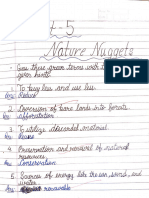 L-5
Nature Nuggets
Give these green terms with the
given hints
1. To buy less and use less.
Ans Reduce
2. Conversion of bare lands into forests
Ans afforestation
3. To utilize discarded material
Ans Reuse
4. Preservation and renewal of natural
resources.
Ans Conservation
5. Sources of energy like the sun, wind, and
water.
Ans renewable